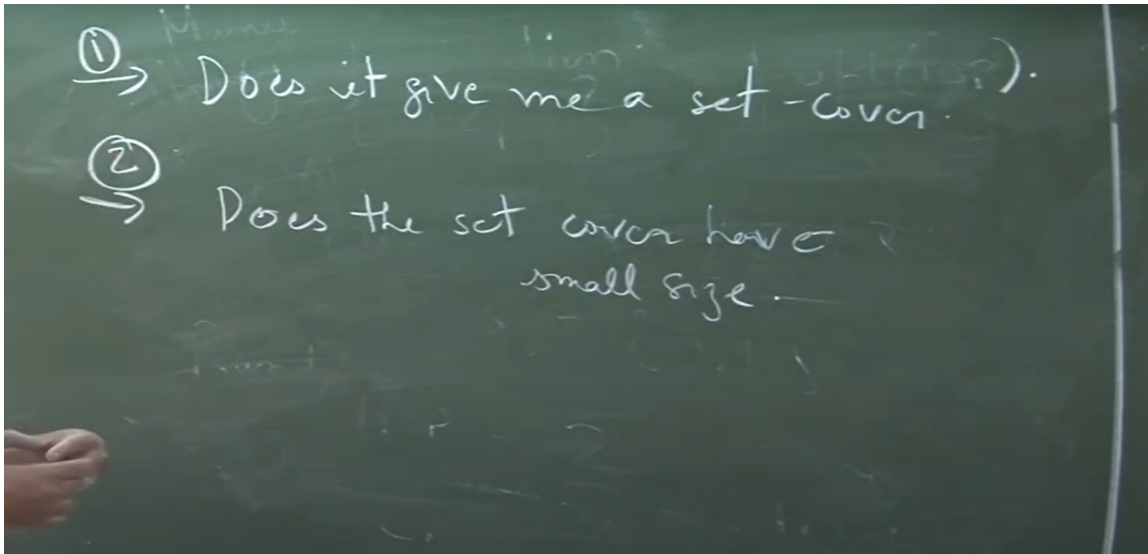 ① Does it give me a set-cover.
② Does the set cover have
small size.